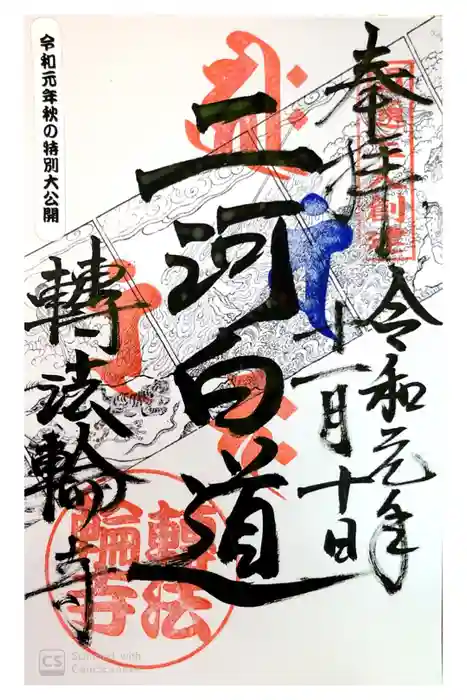 奉拝
令和元年
十一月十日
二河白道
轉法輪寺
令和元年秋の特別大公開
轉法
輪寺
CS
Scanned with
CamScanner